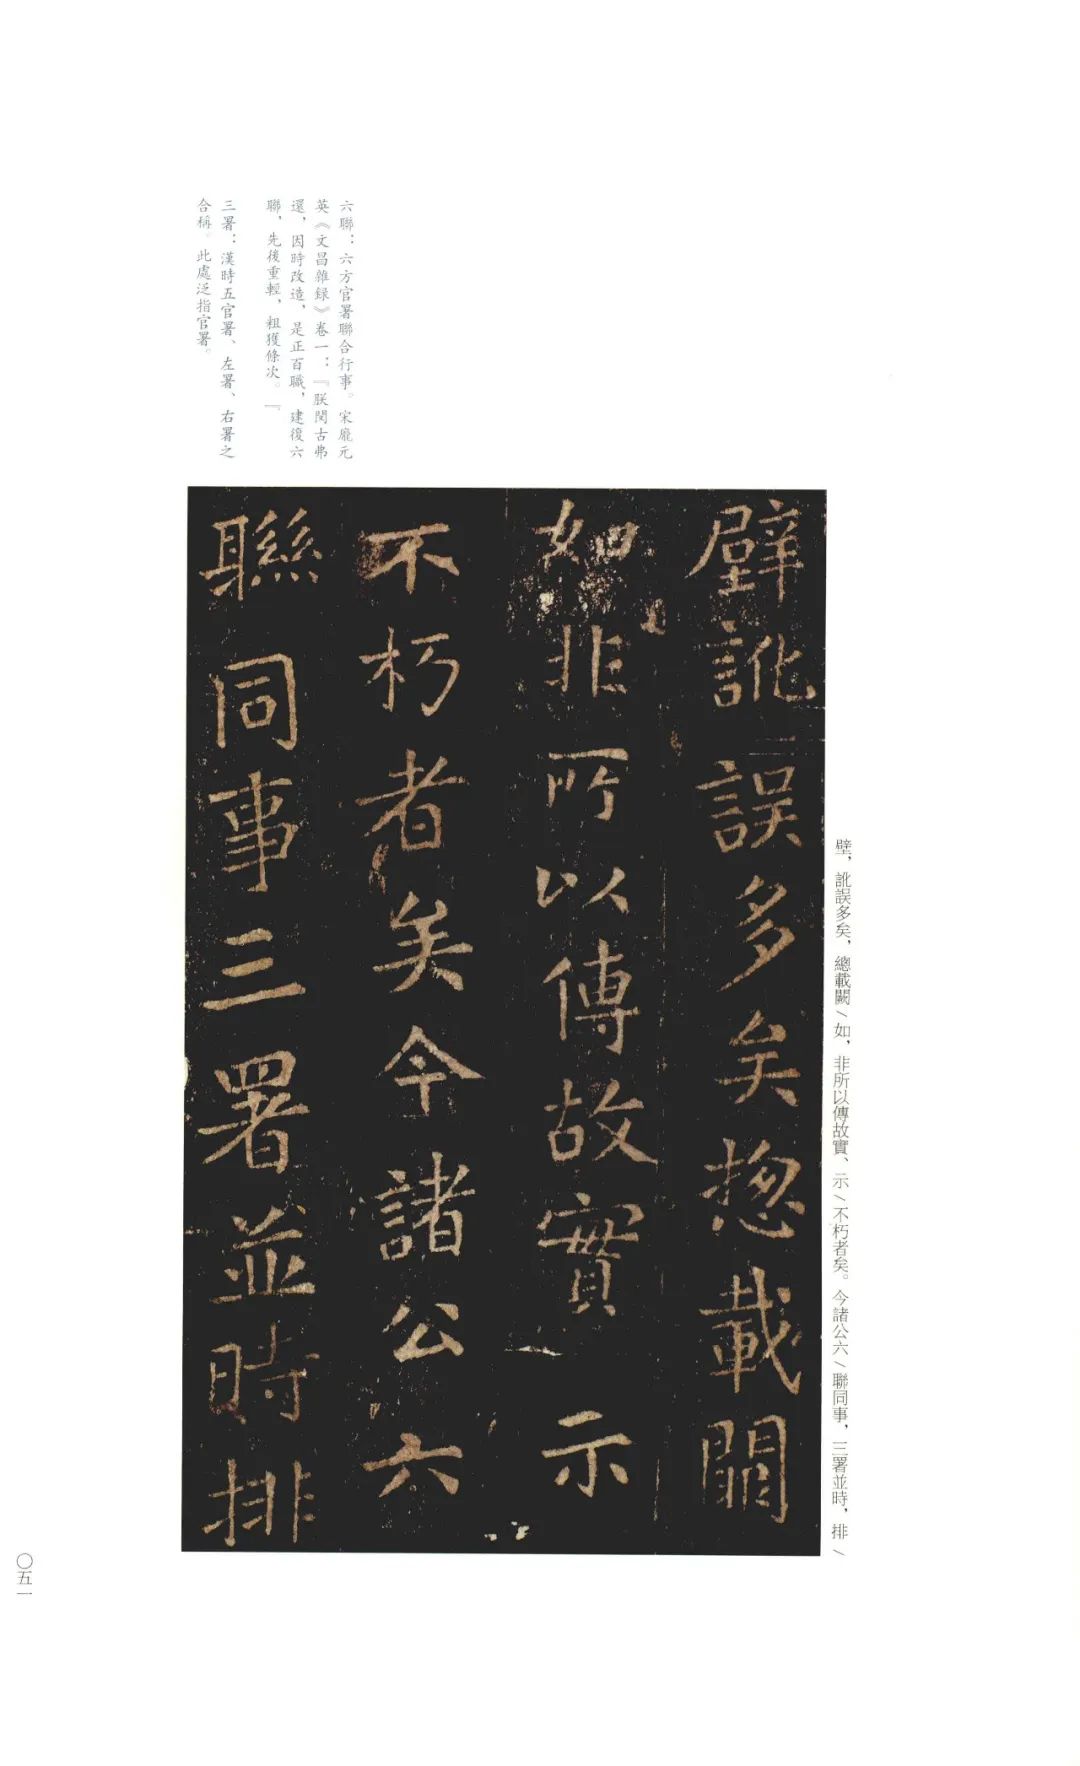 六聯：六方官署聯合行事。宋龐元
英《文昌雜録》卷一：『朕閔古弗
還，因時改造，是正百職，建復六
聯，先後重輕，粗獲條次。』
三署：漢時五官署、左署、右署之
合稱。此處泛指官署。
壁訛誤多矣惣載闕
如非所以傳故實示
不朽者矣今諸公六
聯同事三署並時排
壁，訛誤多矣，總載闕／如，非所以傳故實、示／不朽者矣。今諸公六／聯同事，三署並時，排／
〇五一